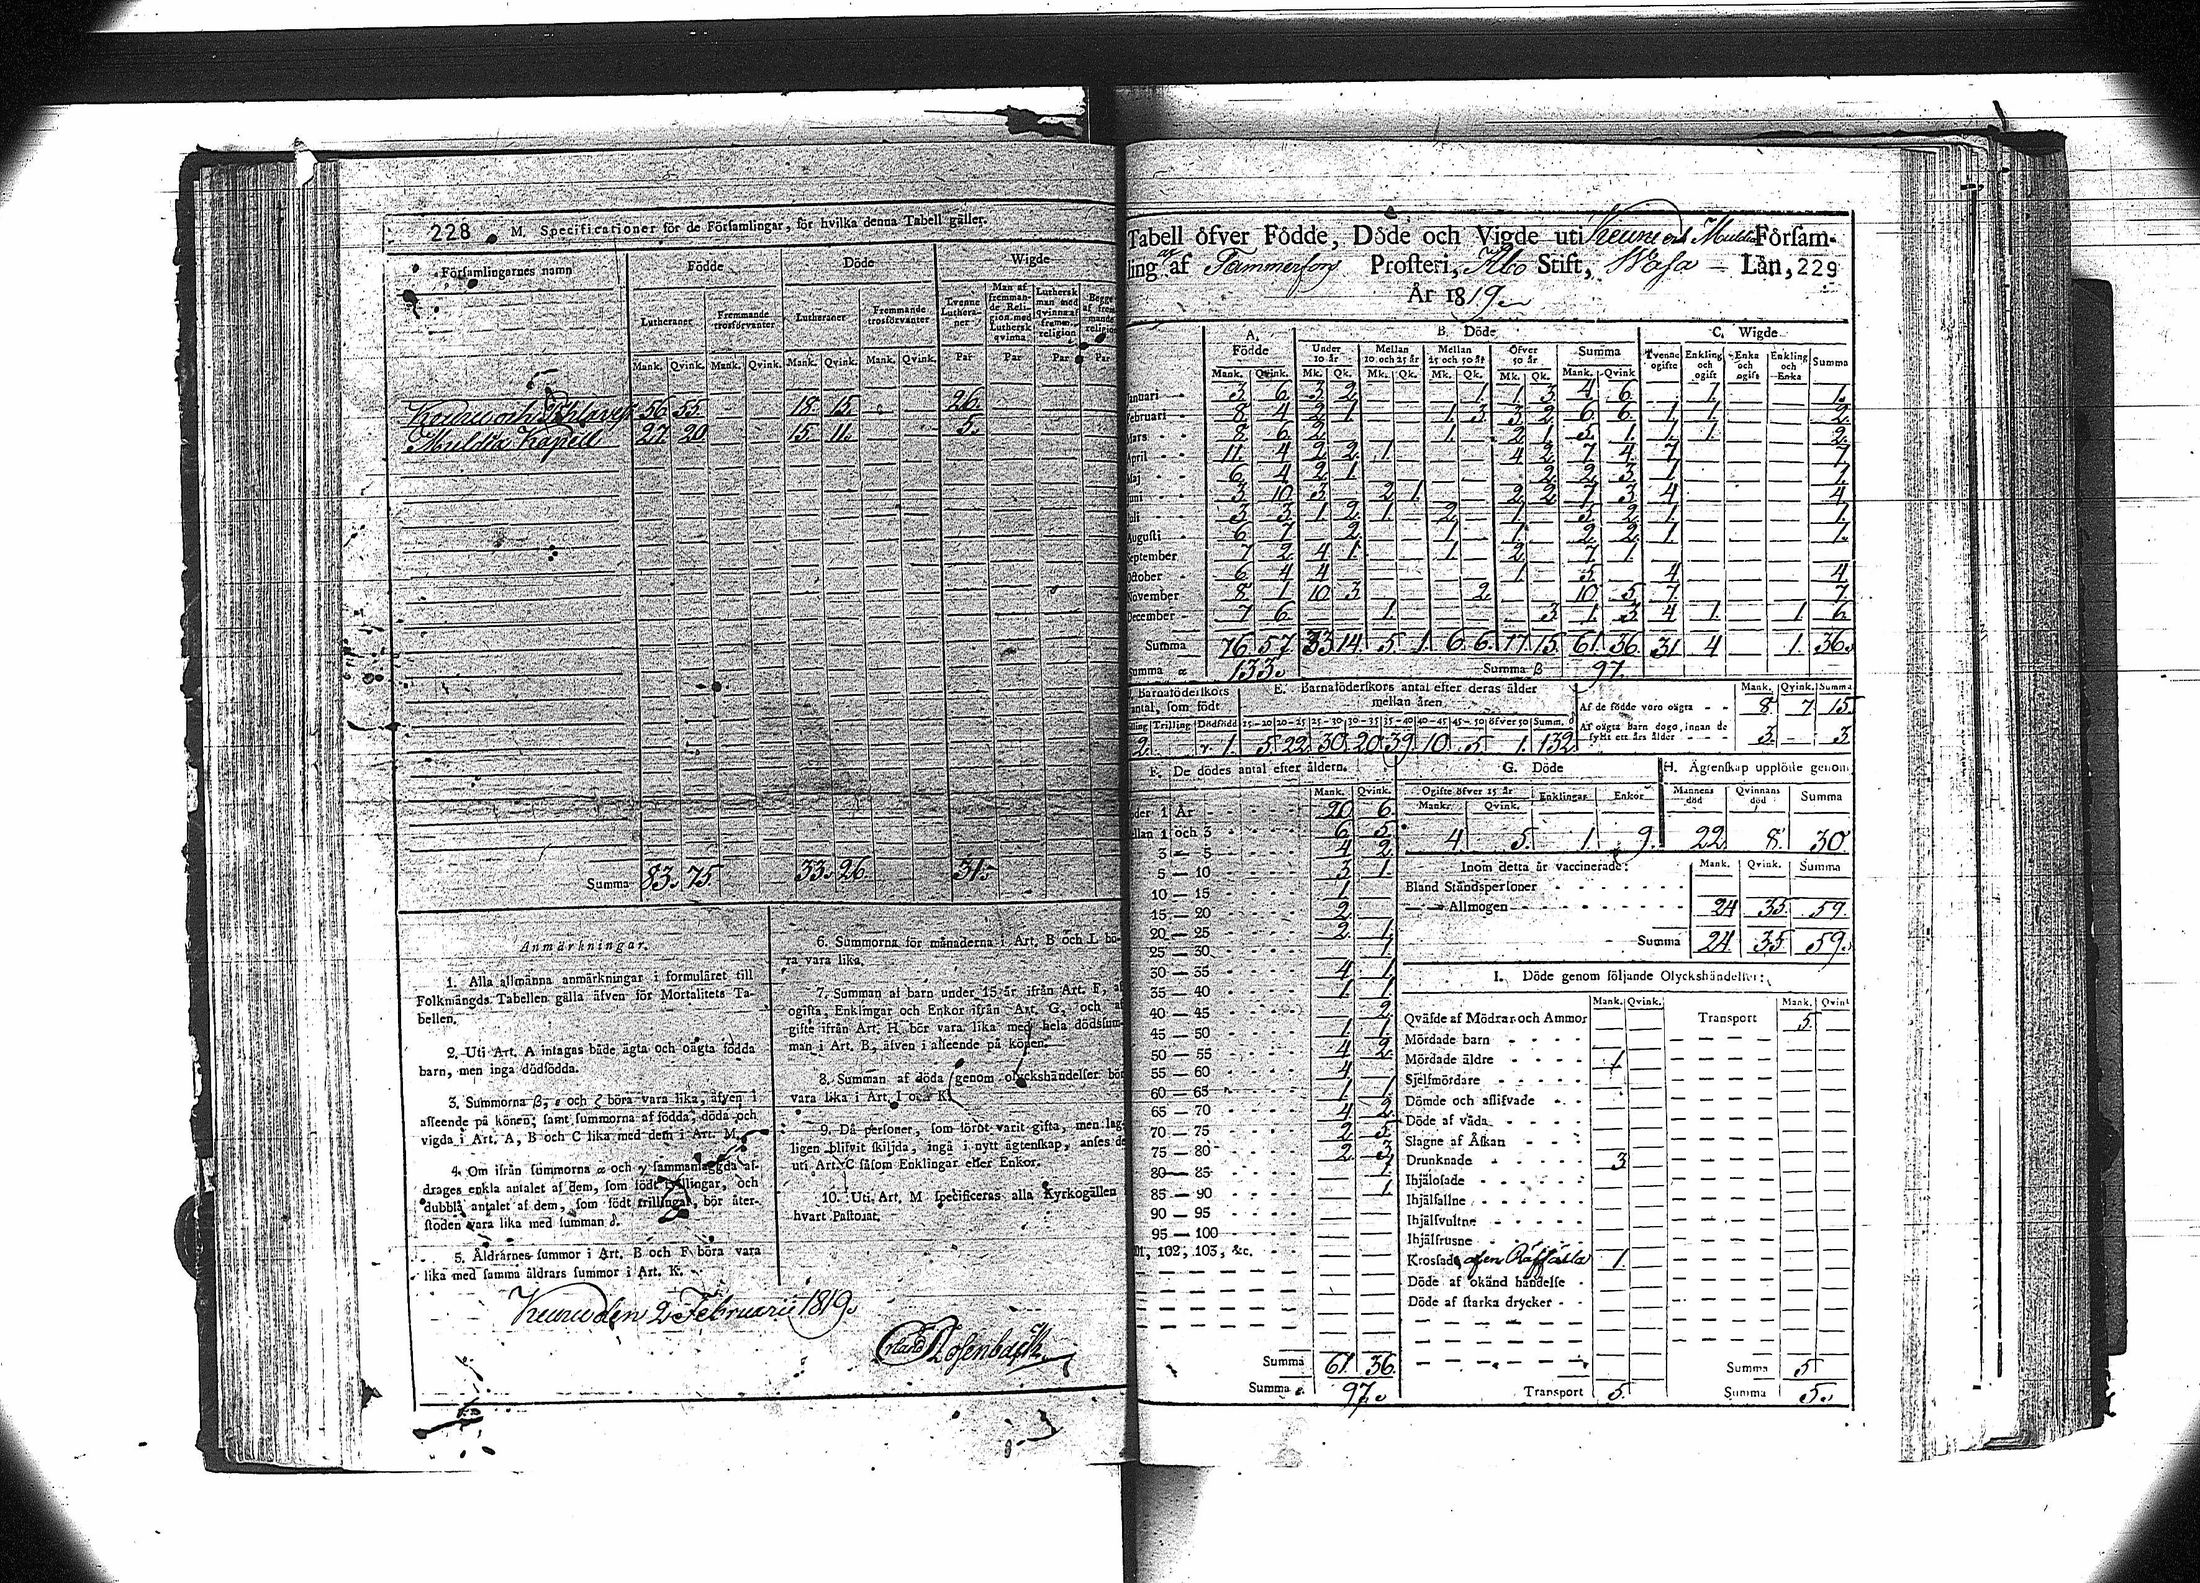 228 M. Specificationer för de Församlingar, för hvilka denna Tabell gäller.
Församlingarnes namn Födde Döde Wigde
Lutheraner Fremmande trosförvanter Lutheraner Fremmande trosförvanter Tvenne Lutheraner Man af fremmande Religion med Luthersk qvinna Luthersk man med qvinna af fremm. religion Begge af fremmande religion
Mank. Qvink. Mank. Qvink. Mank. Qvink. Mank. Qvink. Par Par Par Par
56 55 18 15 26
Muldia Kapell 27 20 15 11 5
Summa 83 75 33 26 31
Anmärkningar.
1. Alla allmänna anmärkningar i formuläret till
Folkmängds Tabellen gälla äfven för Mortalitets Ta-
bellen.
2. Uti Art. A intagas både ägta och oägta födda
barn, men inga dödfödda.
3. Summorna β, ε och ζ böra vara lika, äfven i
afseende på könen; samt summorna af födda, döda och
vigda i Art. A, B och C lika med dem i Art. M.
4. Om ifrån summorna α och γ sammanlaggda af-
drages enkla antalet af dem, som födt tvillingar, och
dubbla antalet af dem, som födt trillingar, bör åter-
stoden vara lika med summan δ.
5. Åldrarnes summor i Art. B och F böra vara
lika med samma åldrars summor i Art. K.
6. Summorna för månaderna i Art. B och L bö-
ra vara lika.
7. Summan af barn under 15 år ifrån Art. F, af
ogifta, Enklingar och Enkor ifrån Art. G, och af
gifte ifrån Art. H, bör vara lika med hela dödssum-
man i Art. B, äfven i afseende på könen.
8. Summan af döda genom olyckshändelser bör
vara lika i Art. I och K.
9. Då personer, som förut varit gifta, men lag-
ligen blifvit skiljda, ingå i nytt ägtenskap, anses de
uti Art. C såsom Enklingar eller Enkor.
10. Uti Art. M specificeras alla Kyrkogällen i
hvart Pastorat.
Keuru den 2 Februarii 1819.
Tabell öfver Födde, Döde och Vigde uti Keuru och Muldia Församling
af Tammerfors Prosteri, Åbo Stift, Wasa Län, 229
År 1819
A. Födde B. Döde C. Wigde
Under 10 år Mellan 10 och 25 år Mellan 25 och 50 år Öfver 50 år Summa Tvenne ogifte Enkling och ogift Enka och ogift Enkling och Enka Summa
Mank. Qvink. Mk. Qk. Mk. Qk. Mk. Qk. Mk. Qk. Mank. Qvink
Januari 3 6 3 2 1 1 3 4 6 1 1
Februari 8 4 2 1 1 3 3 2 6 6 1 1 2
Mars 8 6 2 1 2 1 5 1 1 1 2
April 11 4 2 2 1 4 2 7 4 7 7
Maj 6 4 2 1 2 2 3 1 1
Juni 3 10 3 2 1 2 2 7 3 4 4
Juli 3 3 1 2 1 2 1 5 2 1 1
Augusti 6 1 2 1 1 2 2 1 1
September 7 2 4 1 1 2 7 1
October 6 4 4 1 5 4 4
November 8 1 10 3 2 10 5 7 7
December 7 6 1 3 1 3 4 1 1 6
Summa 76 57 33 14 5 1 6 6 17 15 61 36 31 4 1 36
Summa α 133 Summa β 97
Barnaföderskors antal, som födt E. Barnaföderskors antal efter deras ålder mellan åren
Trilling Dödfödd 15-20 20-25 25-30 30-35 35-40 40-45 45-50 öfver 50 Summ. δ
2 1 5 22 30 20 39 10 5 1 132
Mank. Qvink. Summa
Af de födde voro oägta 8 7 15
Af oägta barn dogo, innan de fyllt ett års ålder 3 - 3
F. De dödes antal efter åldern.
Mank. Qvink.
Under 1 År 20 6
Mellan 1 och 3 6 5
3 - 5 4 2
5 - 10 3 1
10 - 15 1
15 - 20 2
20 - 25 2 1
25 - 30 1
30 - 35 4 1
35 - 40 1 1
40 - 45 2
45 - 50 1 1
50 - 55 4 2
55 - 60 4
60 - 65 1 1
65 - 70 4 2
70 - 75 2 5
75 - 80 2 3
80 - 85 1
85 - 90 1
90 - 95
95 - 100
101, 102, 103, &c.
Summa 61 36
Summa ε. 97
G. Döde H. Ägtenskap upplöste genom
Ogifte öfver 15 år Enklingar Enkor Mannens död Qvinnans död Summa
Mank. Qvink.
4 5 1 9 22 8 30
Inom detta år vaccinerade: Mank. Qvink. Summa
Bland Ståndspersoner
Allmogen 24 35 59
Summa 24 35 59
I. Döde genom följande Olyckshändelser:
Mank. Qvink. Mank. Qvink
Qväfde af Mödrar och Ammor Transport 5
Mördade barn
Mördade äldre 1
Sjelfmördare
Dömde och aflifvade
Döde af våda
Slagne af Åskan
Drunknade 3
Ihjälosade
Ihjälfallne
Ihjälsvultne
Ihjälfrusne
Krossade 1
Döde af okänd händelse
Döde af starka drycker
Summa 5
Transport 5 Summa 5